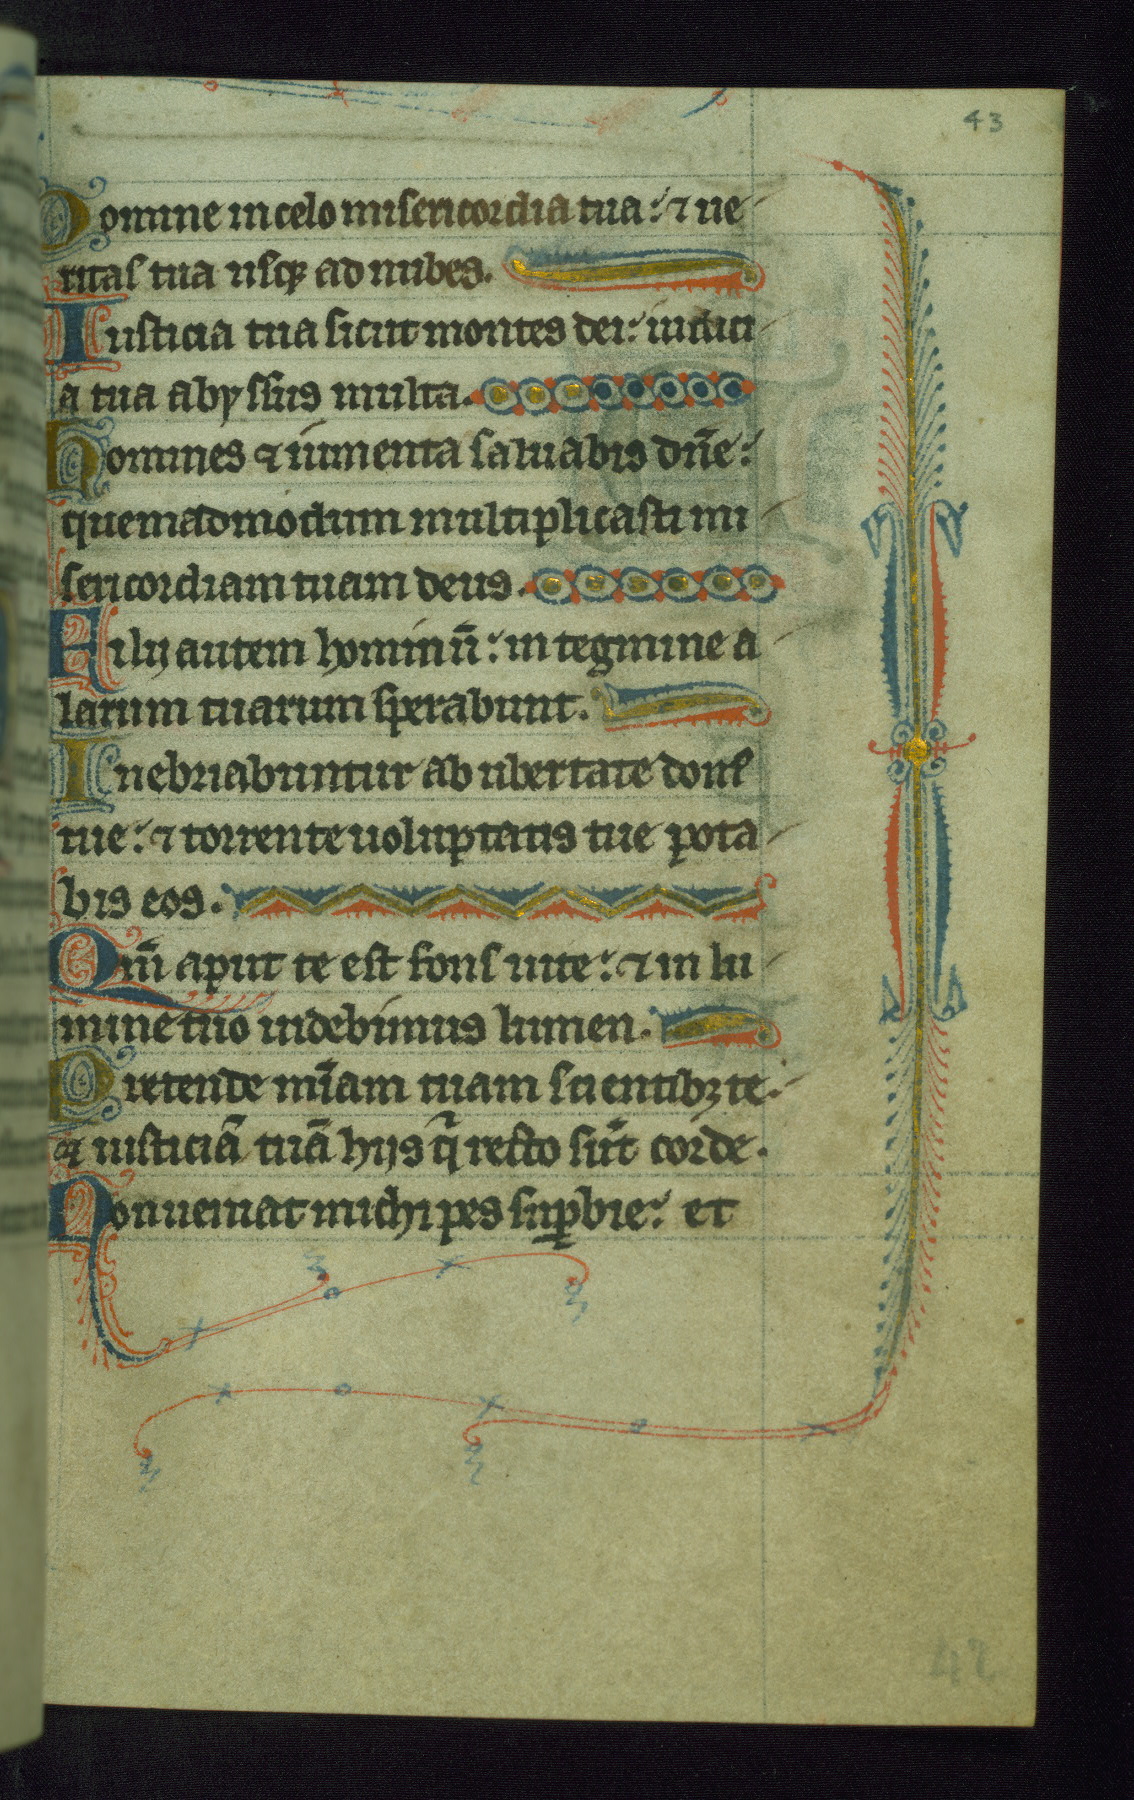 43
Domine in celo misericordia tua: ⁊ ue
ritas tua usqꝫ ad nubes.
Iusticia tua sicut montes dei: iudici
a tua abyssus multa.
Homines ⁊ iumenta saluabis dñe:
quemadmodum multiplicasti mi
sericordiam tuam deus.
Filij autem hominū: in tegmine a
larum tuarum sperabunt.
Inebriabuntur ab ubertate domꝰ
tue: ⁊ torrente uoluptatis tue pota
bis eos.
Qm̄ aput te est fons uite: ⁊ in lu
mine tuo uidebimus lumen.
Pretende mīam tuam scientibꝫ te.
⁊ iusticiā tuā hijs q̇ recto sūt corde.
Non ueniat michi pes suꝑbie: et